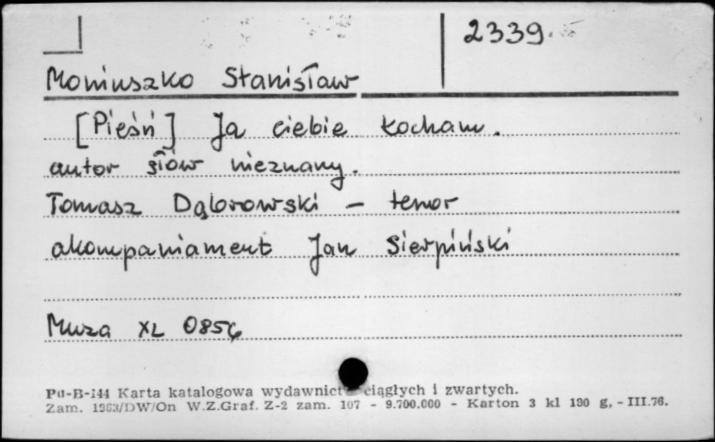 2339
Moniuszko Stanisław
[Pieśń] Ja ciebie kocham.
autor słów nieznany.
Tomasz Dąbrowski – tenor
akompaniament Jan Sierpiński
Muza XL 0856
Pu-B-144 Karta katalogowa wydawnict ciągłych i zwartych.
Zam. 1963/DW/On W.Z.Graf. Z-2 zam. 107 - 9.700.000 - Karton 3 kl 190 g, - III.76.